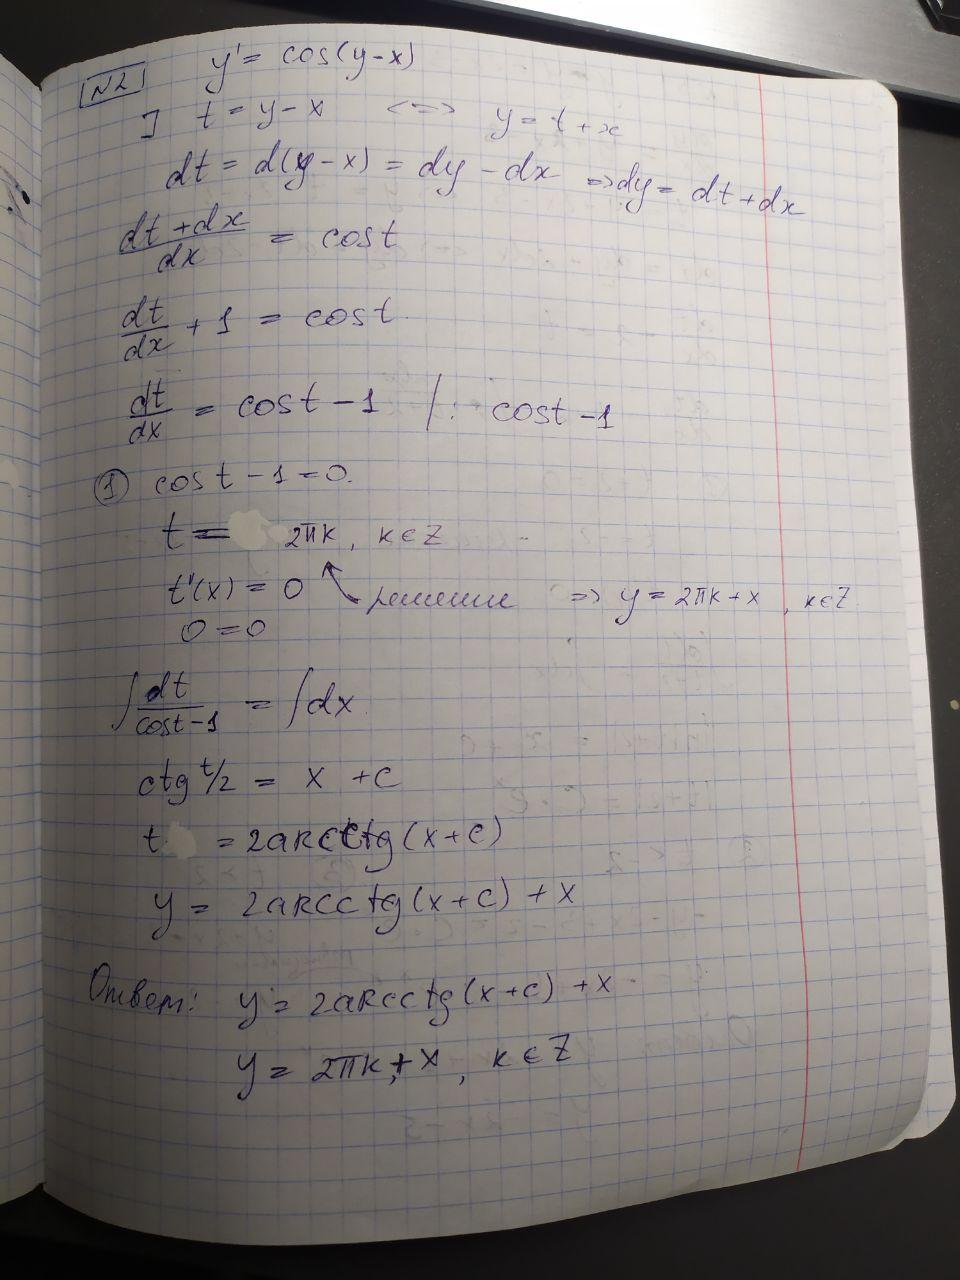 N2 y' = cos(y-x)
] t = y-x <=> y = t+x
dt = d(y-x) = dy - dx => dy = dt+dx
(dt+dx)/dx = cost
dt/dx + 1 = cost
dt/dx = cost - 1 | : cost - 1
① cost - 1 = 0.
t = 2πk, k∈Z
t'(x) = 0 ↖ решение => y = 2πk+x, k∈Z
0 = 0
∫ dt/(cost-1) = ∫ dx
ctg t/2 = x + c
t = 2arcctg(x+c)
y = 2arcctg(x+c) + x
Ответ: y = 2arcctg(x+c) + x
y = 2πk + x, k∈Z